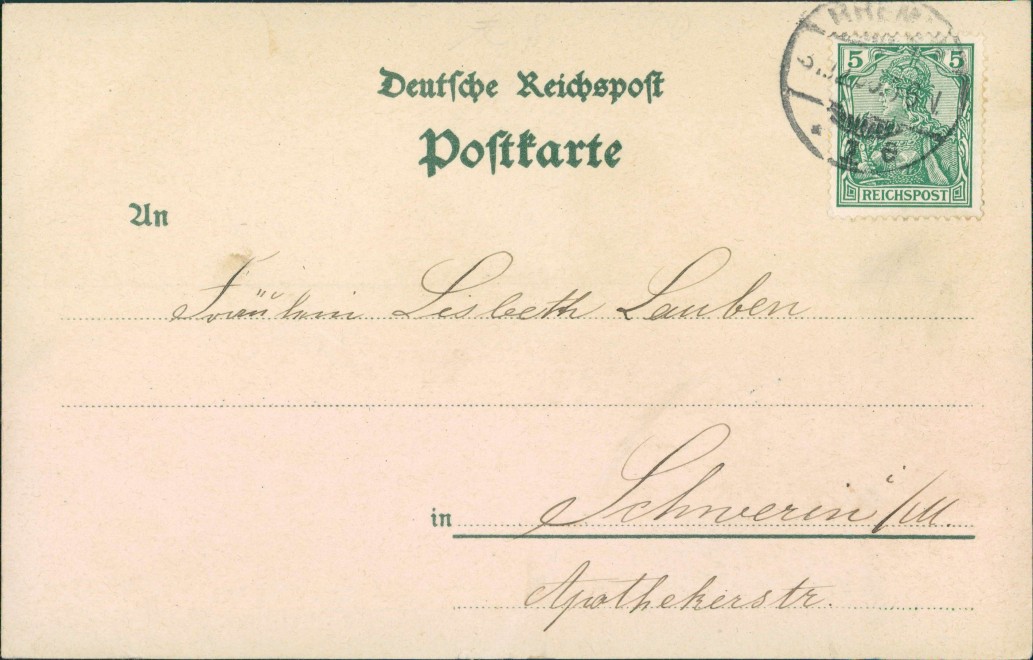 Deutsche Reichspost
Postkarte
5 5
REICHSPOST
An
Fräulein Lisbeth Lauben
in Schwerin i/M.
Apothekerstr.